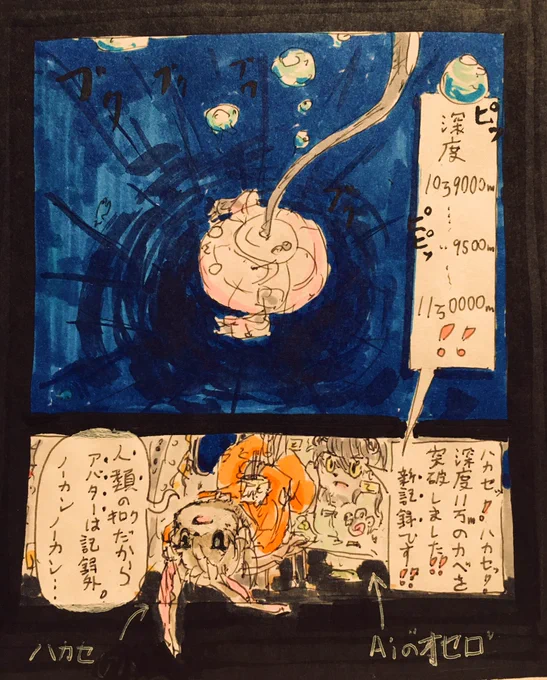 ブク
ブク
ブク
ブク
ピッ
深度
10万9000m
9500m
ピピッ
11万0000m
!!
ハカセッ!ハカセッ!
深度11万のカベを
突破しました!!
新記録です!!
人類の和だから
アバターは記録外。
ノーカンノーカン…
ハカセ
Aiのオセロ